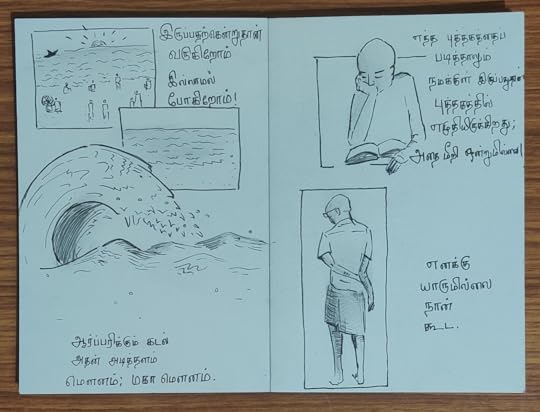 இருப்பதற்கென்றுதான்
வருகிறோம்
இல்லாமல்
போகிறோம்!
ஆர்ப்பரிக்கும் கடல்
அதன் அடித்தளம்
மௌனம்; மகா மௌனம்.
எந்த புத்தகத்தைப்
படித்தாலும்
நமக்குள் இருப்பதுதான்
புத்தகத்தில்
எழுதியிருக்கிறது;
அதை மீறி ஒன்றுமில்லை!
எனக்கு
யாருமில்லை
நான்
கூட.